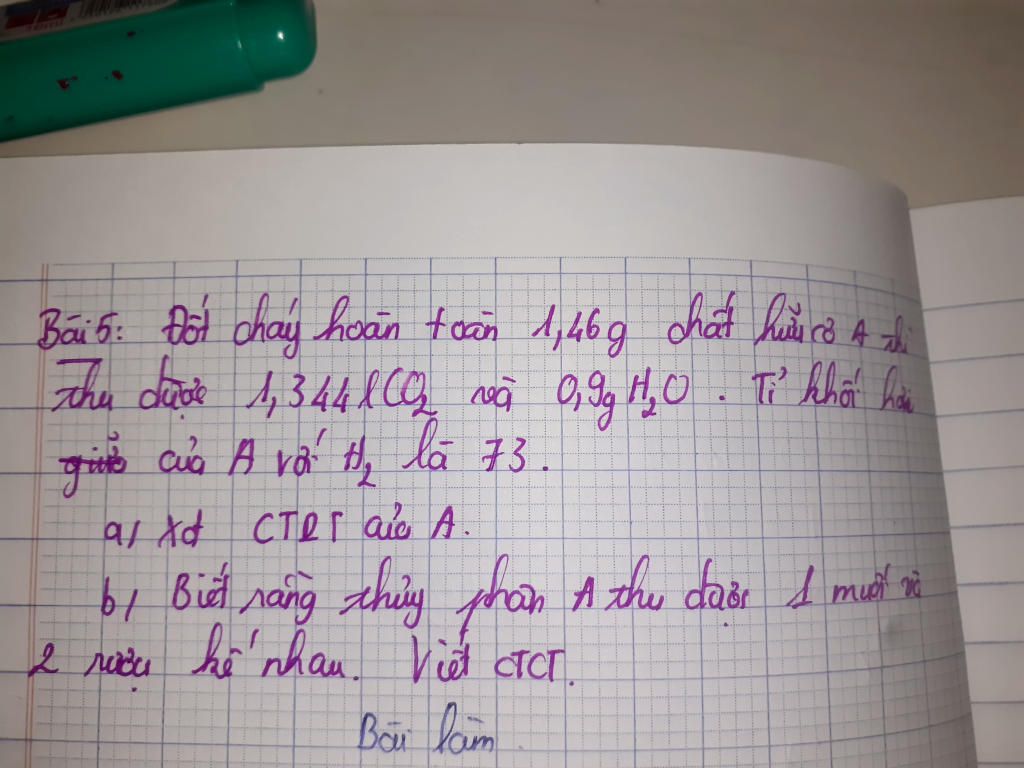 Bài 5: Đốt cháy hoàn toàn 1,46g chất hữu cơ A thì
thu được 1,344l CO2 và 0,9g H2O. Tỉ khối hơi
của A với H2 là 73.
a/ Xđ CTPT của A.
b/ Biết rằng thủy phân A thu được 1 muối và
2 rượu kế nhau. Viết CTCT.
Bài làm